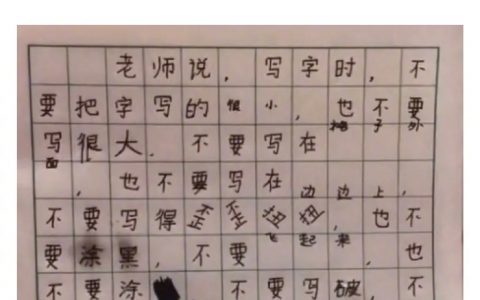 老师说，写字时，不
要把字写的很小，也不要
写很大．不要写在格子外
面，也不要写在边边上，
不要写得歪歪扭扭，也不
要涂黑，不要飞起来，也
不要涂 不要写破，不